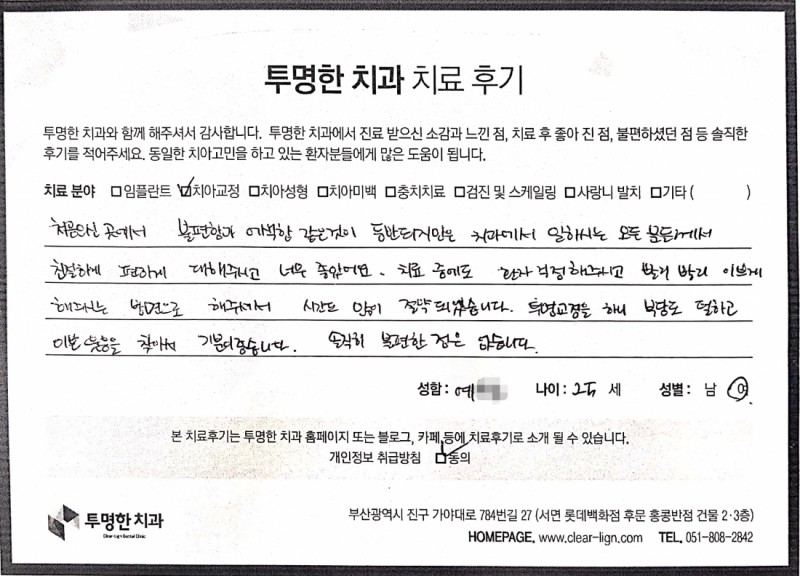 투명한 치과 치료 후기
투명한 치과와 함께 해주셔서 감사합니다. 투명한 치과에서 진료 받으신 소감과 느낀 점, 치료 후 좋아 진 점, 불편하셨던 점 등 솔직한
후기를 적어주세요. 동일한 치아고민을 하고 있는 환자분들에게 많은 도움이 됩니다.
치료 분야 □임플란트 ☑치아교정 □치아성형 □치아미백 □충치치료 □검진 및 스케일링 □사랑니 발치 □기타 ( )
곳에서 불편함과 어색함 같은것이 동반되지만은 치과에서 일하시는 모든 분들께서
친절하게 편하게 대해주시고 너무 좋았어요. 치료 중에도 환자 걱정해주시고 빨리 빨리 이쁘게
해주시는 방면으로 해주셔서 시간도 많이 절약 되었습니다. 투명교정을 하니 부담도 덜하고
이쁜 웃음을 찾아서 기분이좋습니다. 솔직히 불편한 점은 없습니다.
성함 : 예 나이 : 25 세 성별 : 남 여
본 치료후기는 투명한 치과 홈페이지 또는 블로그, 카페 등에 치료후기로 소개 될 수 있습니다.
개인정보 취급방침 ☑동의
투명한 치과
Clear-Lign Dental Clinic
부산광역시 진구 가야대로 784번길 27 (서면 롯데백화점 후문 홍콩반점 건물 2·3층)
HOMEPAGE. www.clear-lign.com TEL. 051-808-2842